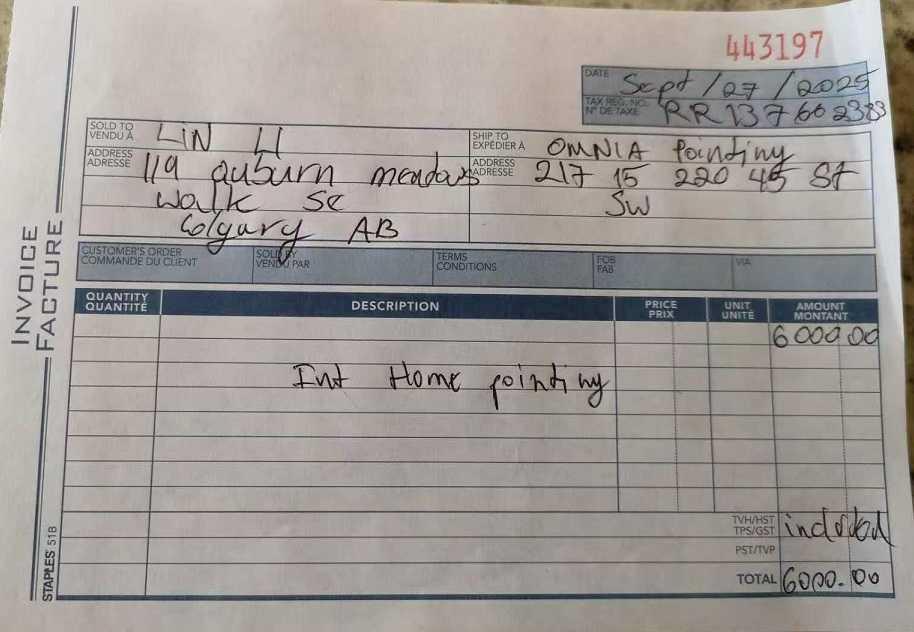 443197
DATE Sept/27/2025
TAX REG. NO. N° DE TAXE RR 137602383
SOLD TO VENDU À LiN LI
SHIP TO EXPÉDIER À OMNIA Painting
ADDRESS ADRESSE 119 auburn meadows
ADDRESS ADRESSE 217 15 220 45 St
walk SE
SW
Calgary AB
INVOICE
FACTURE
CUSTOMER'S ORDER COMMANDE DU CLIENT
SOLD BY VENDU PAR
TERMS CONDITIONS
FOB FAB
VIA
QUANTITY QUANTITÉ
DESCRIPTION
PRICE PRIX
UNIT UNITÉ
AMOUNT MONTANT
6000.00
Int Home painting
TVH/HST TPS/GST included
PST/TVP
TOTAL 6000.00
STAPLES 51B